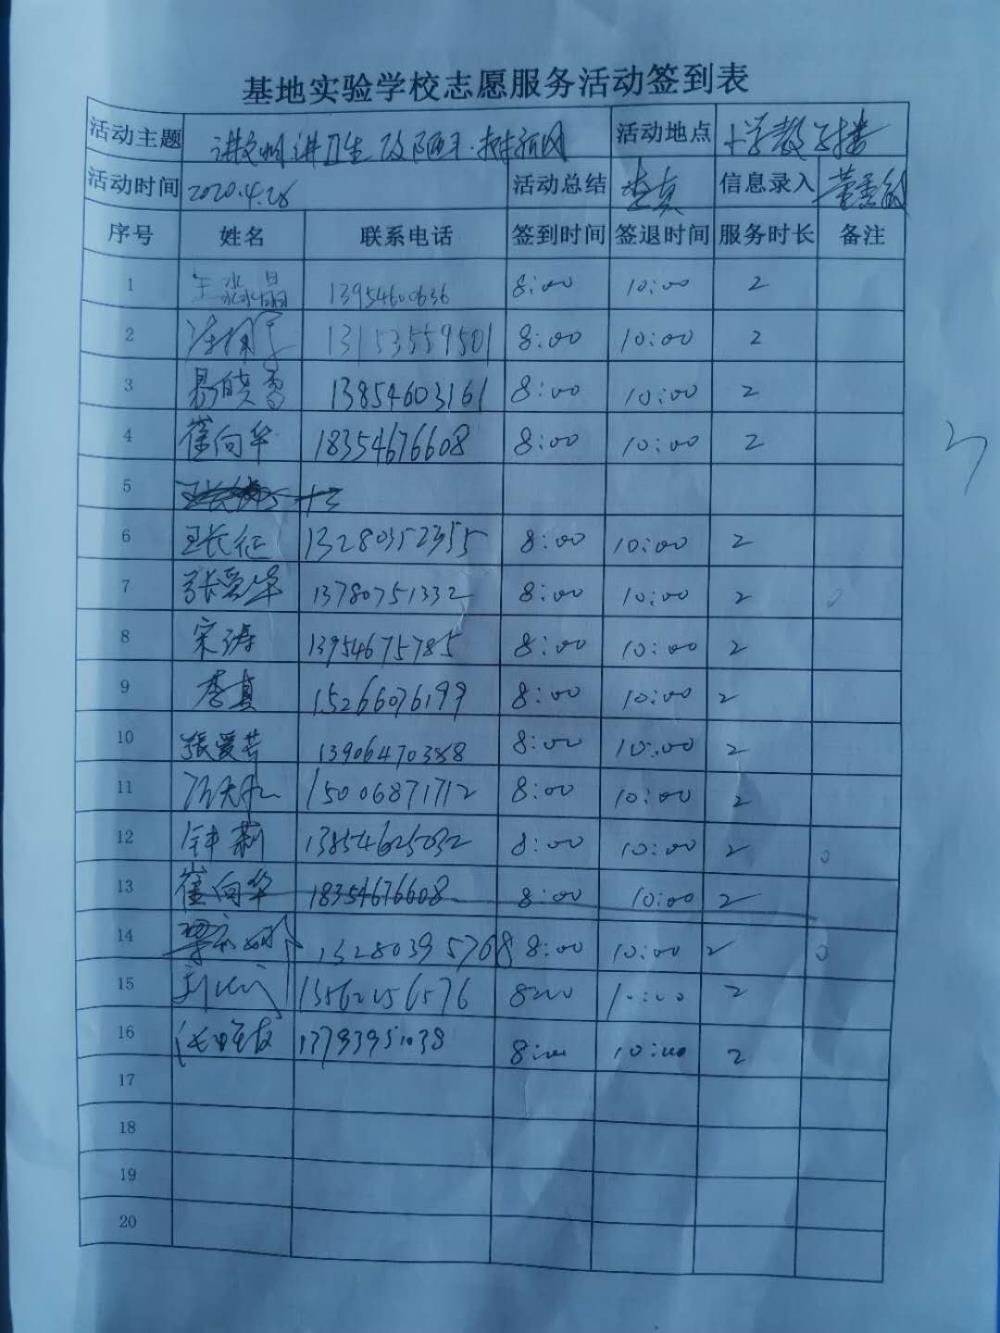 基地实验学校志愿服务活动签到表
活动主题 讲文明讲卫生 改陋习·树新风 活动地点 小学教学楼
活动时间 2020.4.26 活动总结 李真 信息录入 董
序号 姓名 联系电话 签到时间 签退时间 服务时长 备注
1 王淼晶 13954600636 8:00 10:00 2
2 13153559501 8:00 10:00 2
3 易晓雪 13854603161 8:00 10:00 2
4 崔向华 18354676608 8:00 10:00 2
5
6 王长征 13280352355 8:00 10:00 2
7 张爱华 13780751332 8:00 10:00 2
8 宋涛 13954675785 8:00 10:00 2
9 李真 15266076199 8:00 10:00 2
10 張爱芳 13906470388 8:00 10:00 2
11 15006871712 8:00 10:00 2
12 钟莉 13854625032 8:00 10:00 2
13 崔向华 18354676608 8:00 10:00 2
14 13280395768 8:00 10:00 2
15 13562256576 8:00 10:00 2
16 13793951038 8:00 10:00 2
17
18
19
20